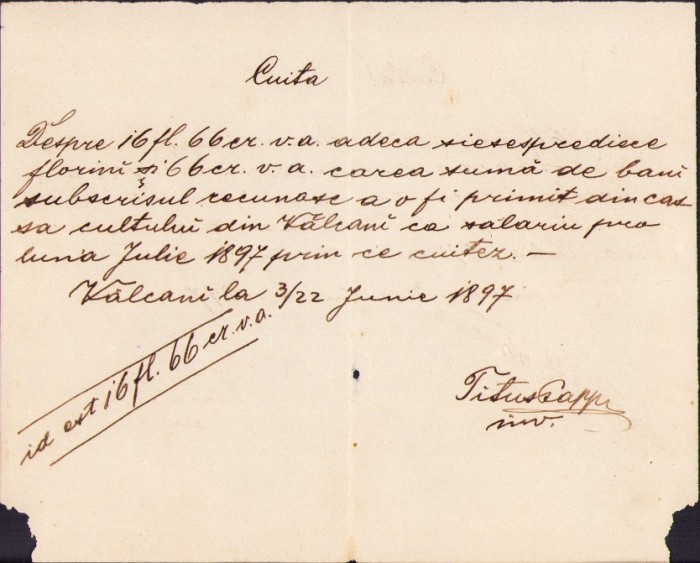 Cuita
Despre 16 fl. 66 cr. v. a. adeca siesespredisce
florini și 66 cr. v. a. carea sumă de bani
subscrisul recunosc a o fi primit din cas
sa cultului din Vălcani ca salariu pro
luna Julie 1897 prin ce cuitez. —
Vălcani la 3/22 Junie 1897
id est 16 fl. 66 cr. v. a.
Titus Pappu
inv.